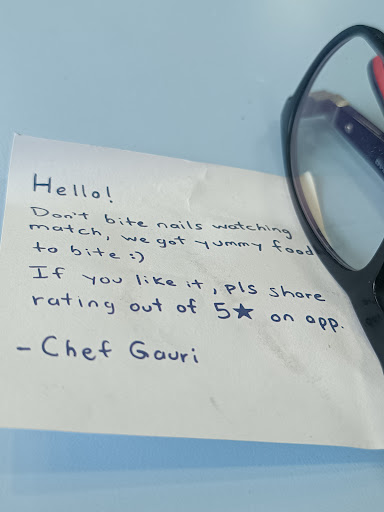 Hello!
Don't bite nails watching
match, we got yummy food
to bite :)
If you like it, pls share
rating out of 5★ on app.
- Chef Gauri